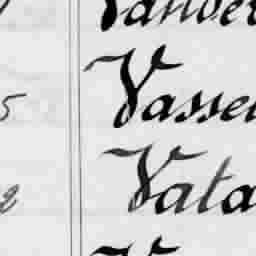 Vande
5 Vasse
2 Vata